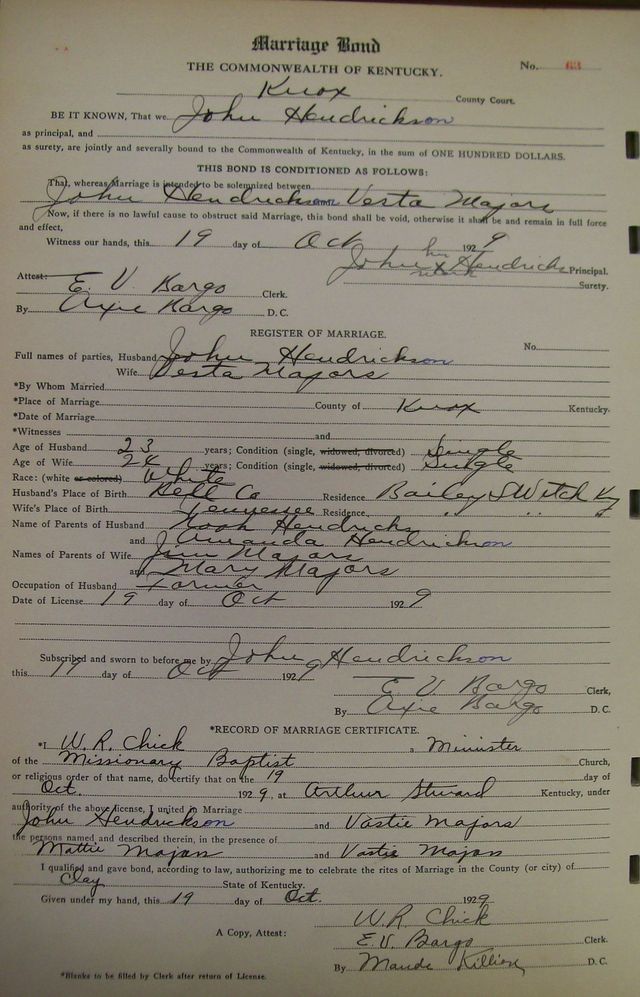 Marriage Bond
THE COMMONWEALTH OF KENTUCKY. No.
Knox County Court.
BE IT KNOWN, That we John Hendrickson
as principal, and
as surety, are jointly and severally bound to the Commonwealth of Kentucky, in the sum of ONE HUNDRED DOLLARS.
THIS BOND IS CONDITIONED AS FOLLOWS:
That, whereas Marriage is intended to be solemnized between
John Hendrickson Vesta Majors
Now, if there is no lawful cause to obstruct said Marriage, this bond shall be void, otherwise it shall be and remain in full force
and effect,
Witness our hands, this 19 day of Oct 1929
John his x mark Hendricks Principal.
Attest: Surety.
E. V. Bargo Clerk.
By Arxie Bargo D. C.
REGISTER OF MARRIAGE.
Full names of parties, Husband John Hendrickson No.
Wife Vesta Majors
*By Whom Married
*Place of Marriage County of Knox Kentucky.
*Date of Marriage
*Witnesses and
Age of Husband 23 years; Condition (single, widowed, divorced) Single
Age of Wife 24 years; Condition (single, widowed, divorced) Single
Race: (white or colored) White
Husband's Place of Birth Bell Co Residence Bailey Switch Ky
Wife's Place of Birth Tennessee Residence " " "
Name of Parents of Husband Hendricks
and Amanda Hendrickson
Names of Parents of Wife Jim Majors
and Mary Majors
Occupation of Husband Farmer
Date of License 19 day of Oct 1929
Subscribed and sworn to before me by John Hendrickson
this 19 day of Oct 1929
E V Bargo Clerk,
By Arxie Bargo D. C.
*RECORD OF MARRIAGE CERTIFICATE.
*I W. R. Chick a Minister
of the Missionary Baptist Church,
or religious order of that name, do certify that on the 19 day of
Oct. 1929, at Arthur Kentucky, under
authority of the above license, I united in Marriage
John Hendrickson and Vastie Majors
the persons named and described therein, in the presence of
Mattie Majors and Vastie Majors
I qualified and gave bond, according to law, authorizing me to celebrate the rites of Marriage in the County (or city) of
Clay State of Kentucky.
Given under my hand, this 19 day of Oct. 1929
W. R. Chick
A Copy, Attest: E. V. Bargo Clerk.
By Maude Killion D. C.
*Blanks to be filled by Clerk after return of License.